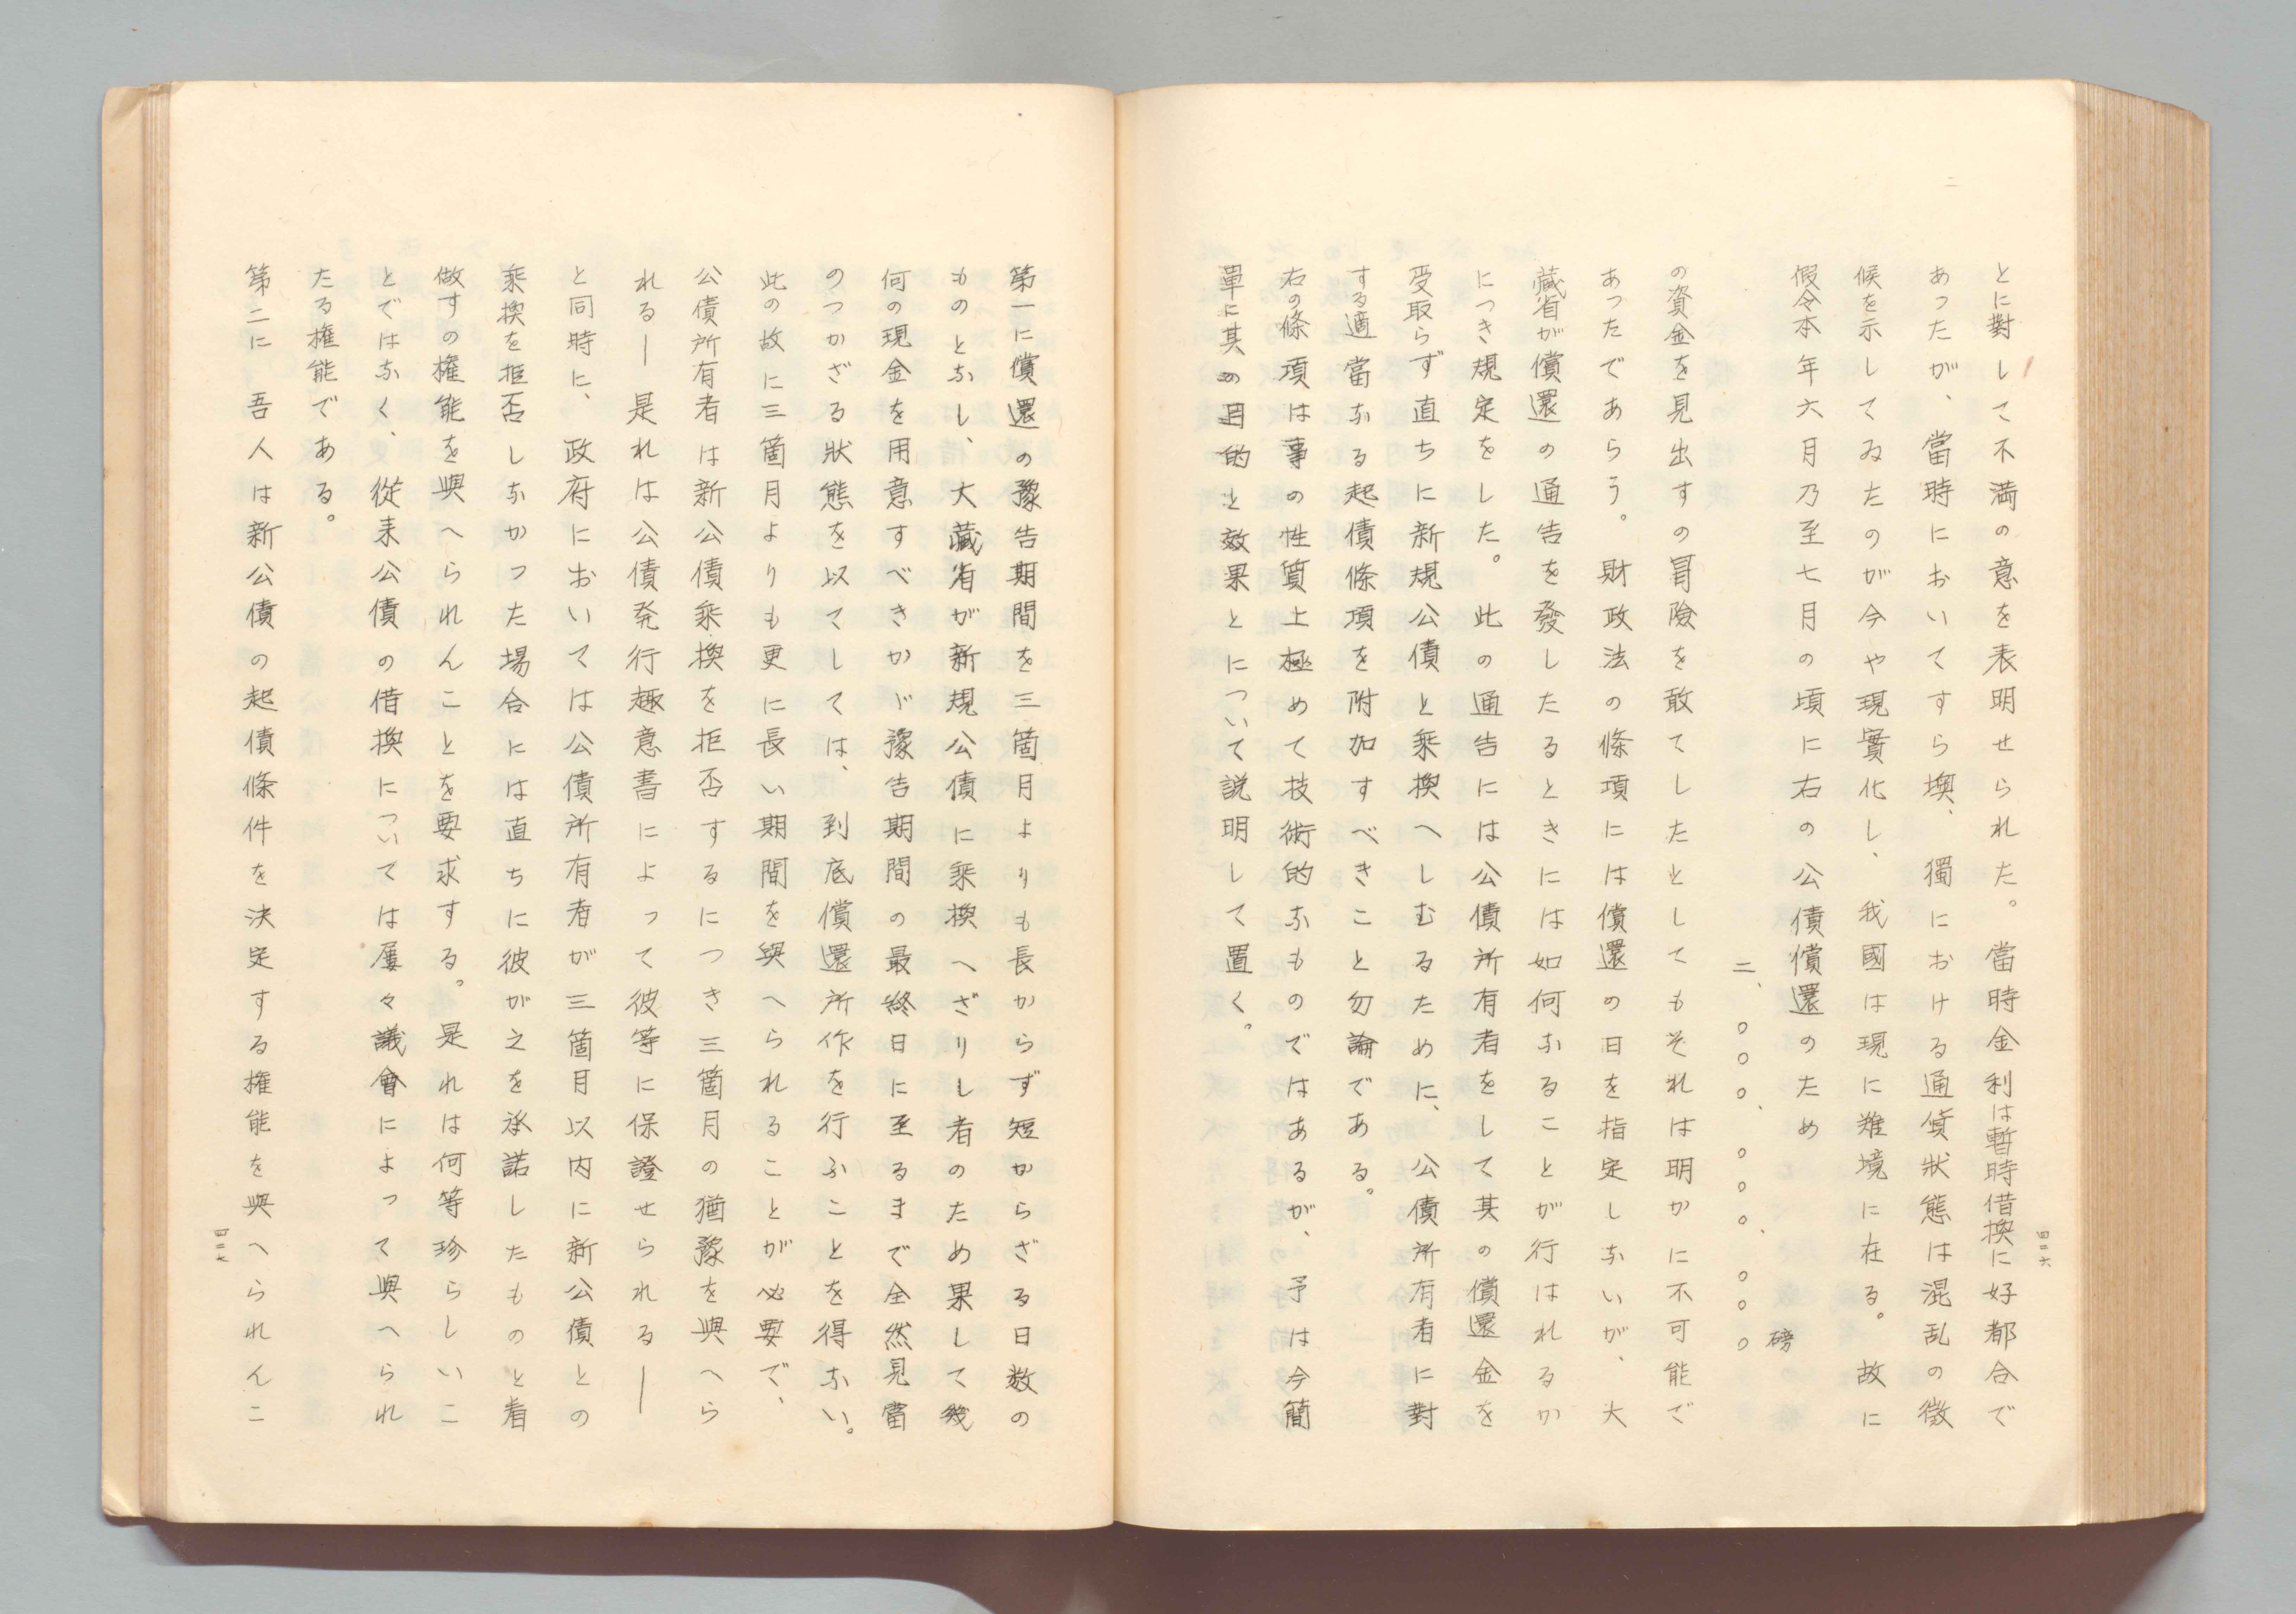 とに對して不満の意を表明せられた。當時金利は暫時借換に好都合で
あつたが、當時においてすら墺、獨における通貨狀態は混乱の徴
候を示してゐたのが今や現實化し、我國は現に難境に在る。故に
假令本年六月乃至七月の頃に右の公債償還のため
二、〇〇〇、〇〇〇、〇〇〇磅
の資金を見出すの冒險を敢てしたとしてもそれは明かに不可能で
あつたであらう。財政法の條項には償還の日を指定しないが、大
藏省が償還の通告を發したるときには如何なることが行はれるか
につき規定をした。此の通告には公債所有者をして其の償還金を
受取らず直ちに新規公債と乘換へしむるために、公債所有者に對
する適當なる起債條項を附加すべきこと勿論である。
右の條項は事の性質上極めて技術的なものではあるが、予は今簡
單に其の目的と效果とについて説明して置く。
四三六
第一に償還の豫告期間を三箇月よりも長からず短からざる日数の
ものとなし、大藏省が新規公債に乘換へざりし者のため果して幾
何の現金を用意すべきかゞ豫告期間の最終日に至るまで全然見當
のつかざる狀態を以てしては、到底償還所作を行ふことを得ない。
此の故に三箇月よりも更に長い期間を與へられることが必要で、
公債所有者は新公債乘換を拒否するにつき三箇月の猶豫を與へら
れる―是れは公債発行趣意書によって彼等に保證せられる―
と同時に、政府においては公債所有者が三箇月以内に新公債との
乘換を拒否しなかつた場合には直ちに彼が之を承諾したものと看
做すの權能を與へられんことを要求する。是れは何等珍らしいこ
とではなく、從来公債の借換については屢々議會によって與へられ
たる權能である。
第二に吾人は新公債の起債條件を決定する権能を與へられんこ
四三七